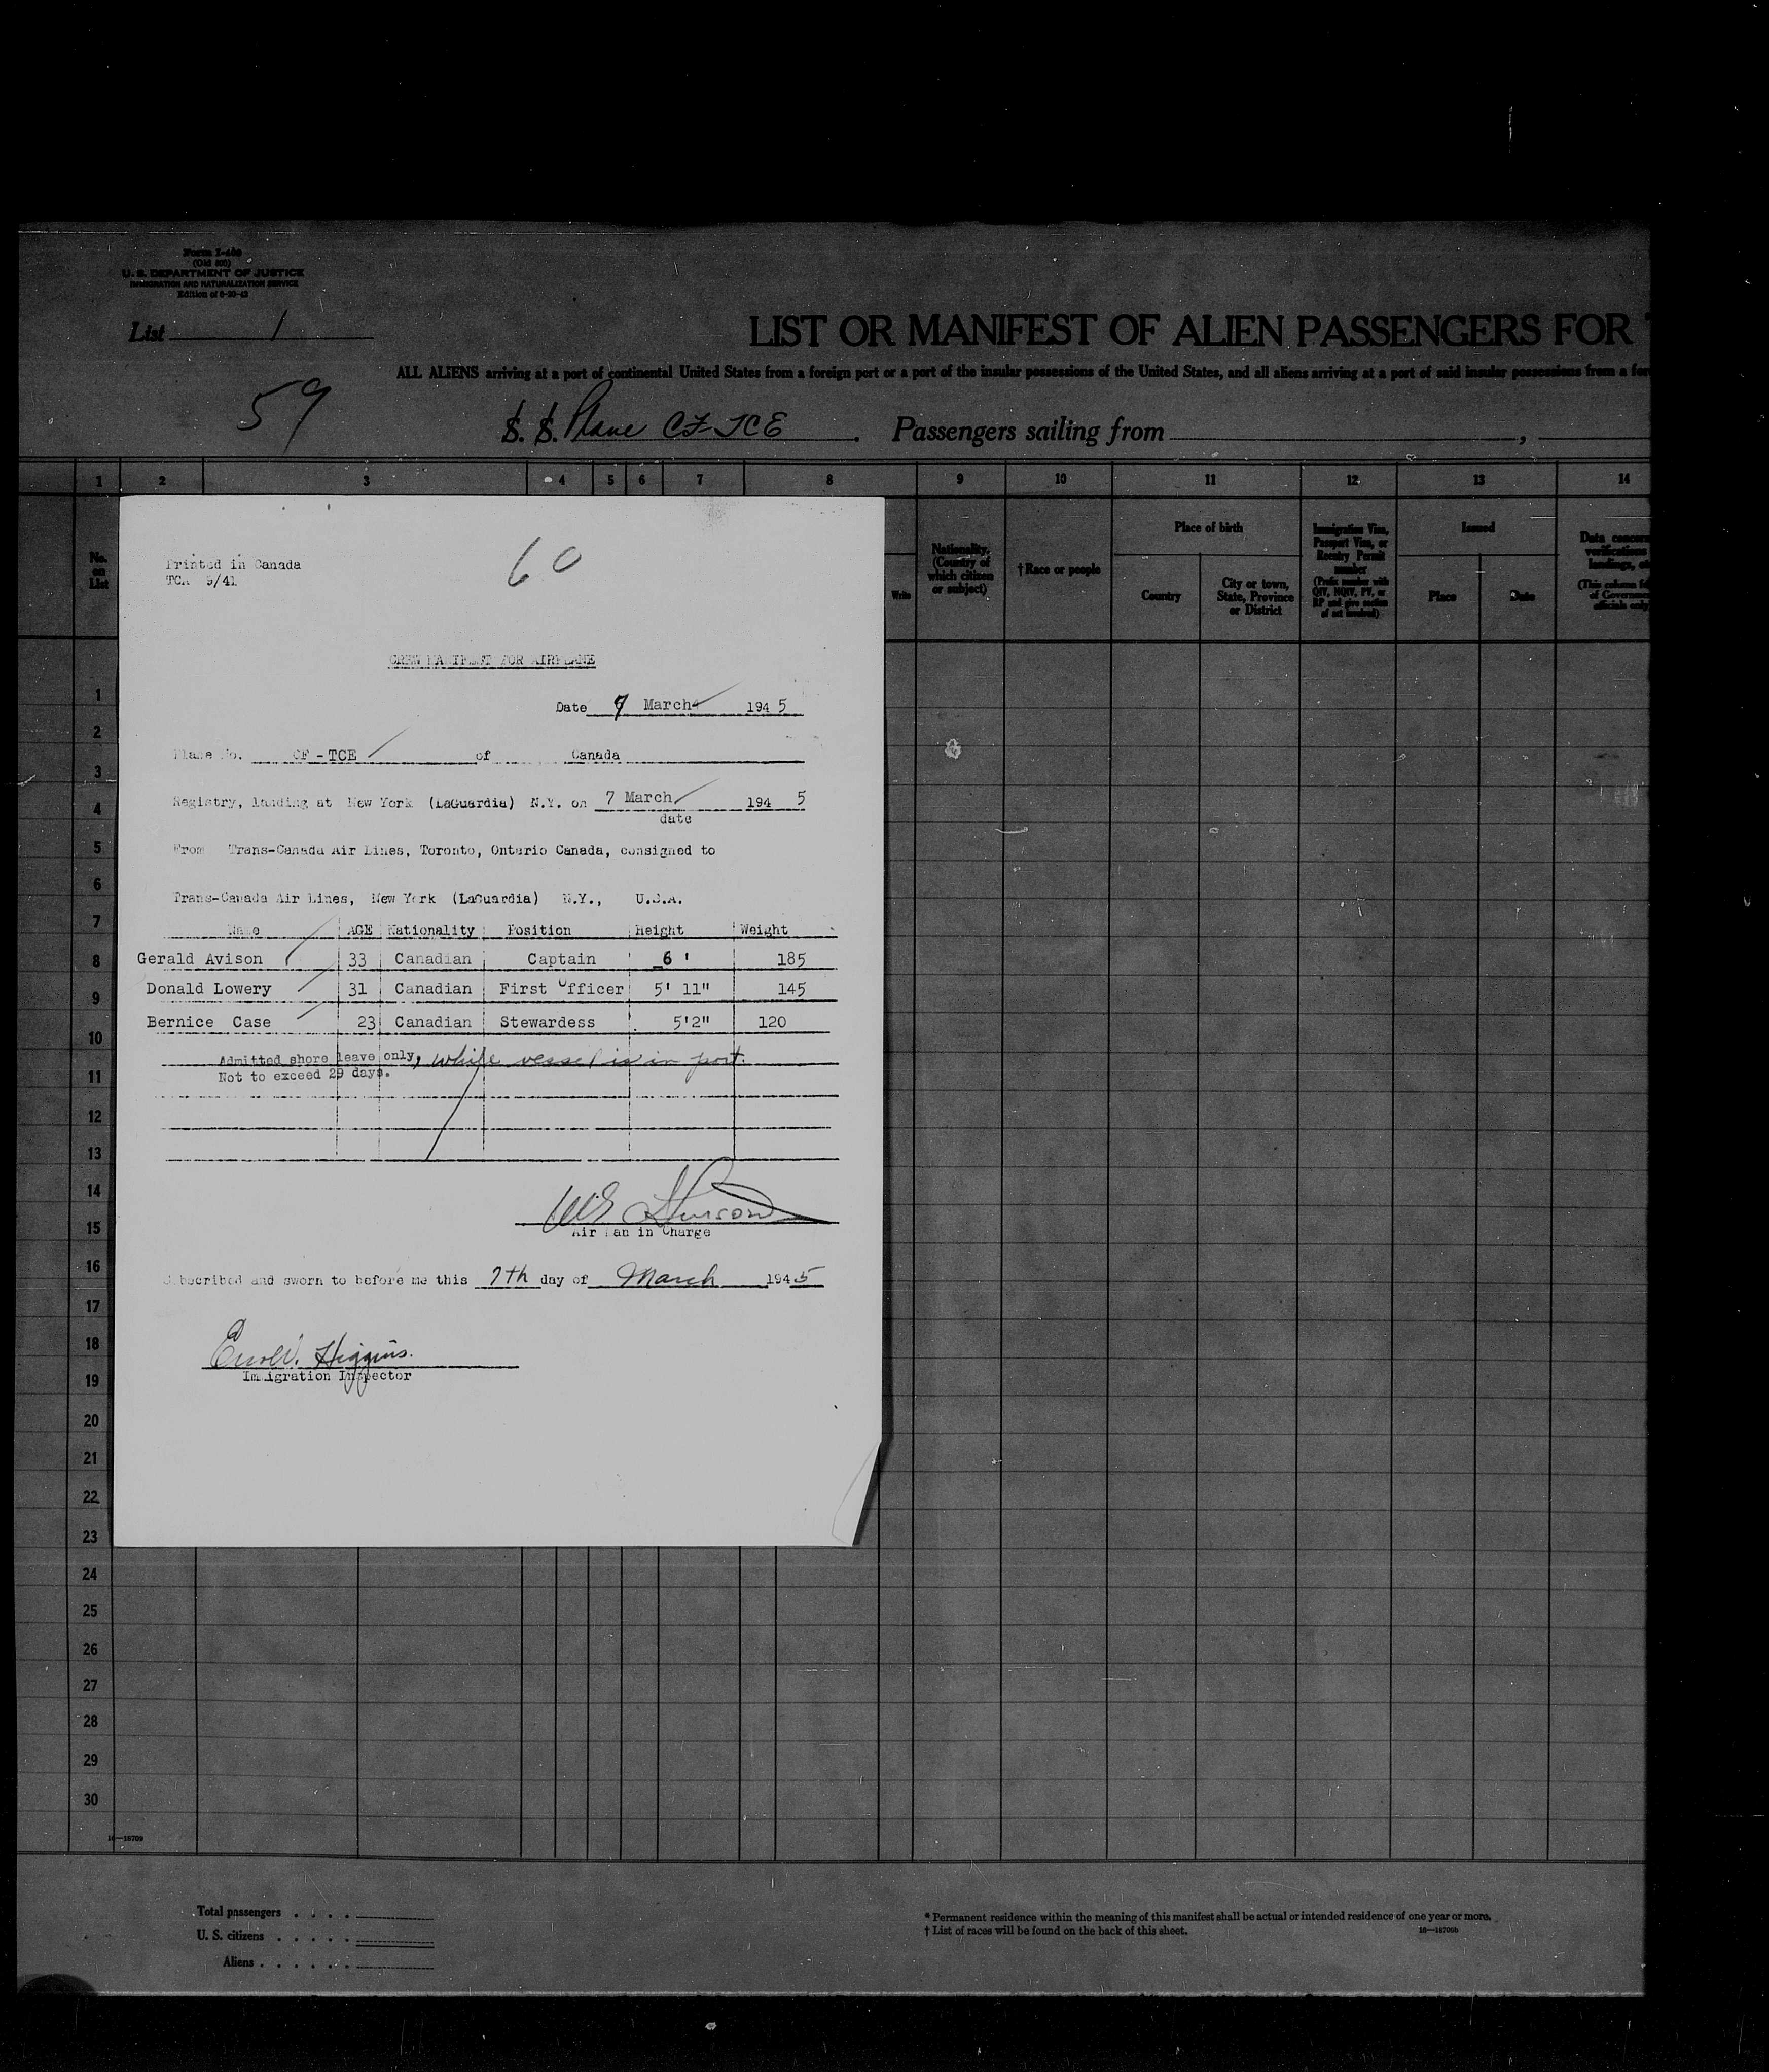 Form I-400
(Old 500)
U. S. DEPARTMENT OF JUSTICE
IMMIGRATION AND NATURALIZATION SERVICE
Edition of
List 1
LIST OR MANIFEST OF ALIEN PASSENGERS FOR
ALL ALIENS arriving at a port of continental United States from a foreign port or a port of the insular possessions of the United States, and all aliens arriving at a port of said insular possessions from a for
59
S. S. Plane CF-TCE. Passengers sailing from ,
1 2 3 4 5 6 7 8 9 10 11 12 13 14
No. on List
Write
Nationality. (Country of which citizen or subject)
† Race or people
Place of birth
Country
City or town, State, Province or District
Immigration Visa, Passport Visa, or Reentry Permit number
(Prefix number with QIV, NQIV, PV, or RP and give section of act involved)
Issued
Place
Date
Data concern
verifications
landings,
(This column f
of Governmen
officials only
60
Printed in Canada
TCA 9/41
CREW MANIFEST FOR AIRPLANE
Date 7 March 1945
Plane No. CF - TCE of Canada
Registry, landing at New York (LaGuardia) N.Y. on 7 March 194 5
date
From Trans-Canada Air Lines, Toronto, Ontario Canada, consigned to
Trans-Canada Air Lines, New York (LaGuardia) N.Y., U.S.A.
Name AGE Nationality Position Height Weight
Gerald Avison 33 Canadian Captain 6 ' 185
Donald Lowery 31 Canadian First Officer 5' 11" 145
Bernice Case 23 Canadian Stewardess 5'2" 120
Admitted shore leave only, while vessel is in port.
Not to exceed 29 days.
Air Man in Charge
Subscribed and sworn to before me this 7th day of March 1945
Higgins.
Immigration Inspector
1
2
3
4
5
6
7
8
9
10
11
12
13
14
15
16
17
18
19
20
21
22
23
24
25
26
27
28
29
30
16—18709
Total passengers . . . .
U. S. citizens . . . . .
Aliens . . . . . .
* Permanent residence within the meaning of this manifest shall be actual or intended residence of one year or more.
† List of races will be found on the back of this sheet.